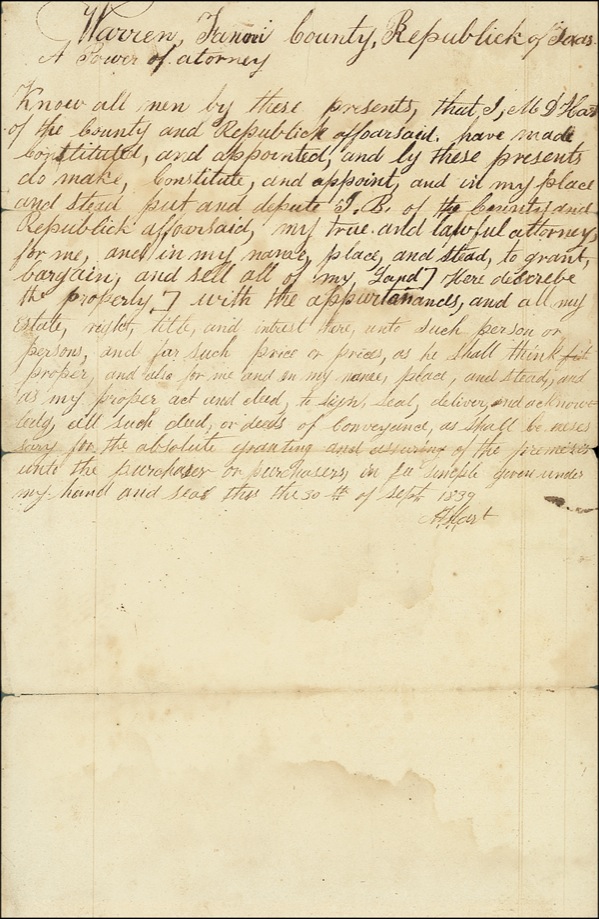 Warren, Fannin County, Republick of Texas
A Power of attorney
Know all men by these presents, that, I, M D Hart
of the County and Republick afforsaid. have made
constituted, and appointed, and by these presents
do make, Constitute, and appoint, and in my place
and stead put and depute J. B. of the County and
Republick afforsaid, my true and lawful attorney,
for me, and in my name, place, and stead, to grant,
bargain, and sell all of my Land] Here discrebe
the property] with the appurtanances, and all my
estate, right, title, and intrest there, unto Such person or
persons, and for such price or prices, as he shall think fit
proper, and also for me and in my name, place, and stead, and
as my proper act and deed, to sign, seal, deliver, and acknow
ledg, all such deed, or deeds of conveyance, as shall be neses
sary for the absolute granting and assuring of the premises
unto the purchaser or purchasers, in fee simple given under
my hand and seal this the 30 th of Sept. 1839
Hart